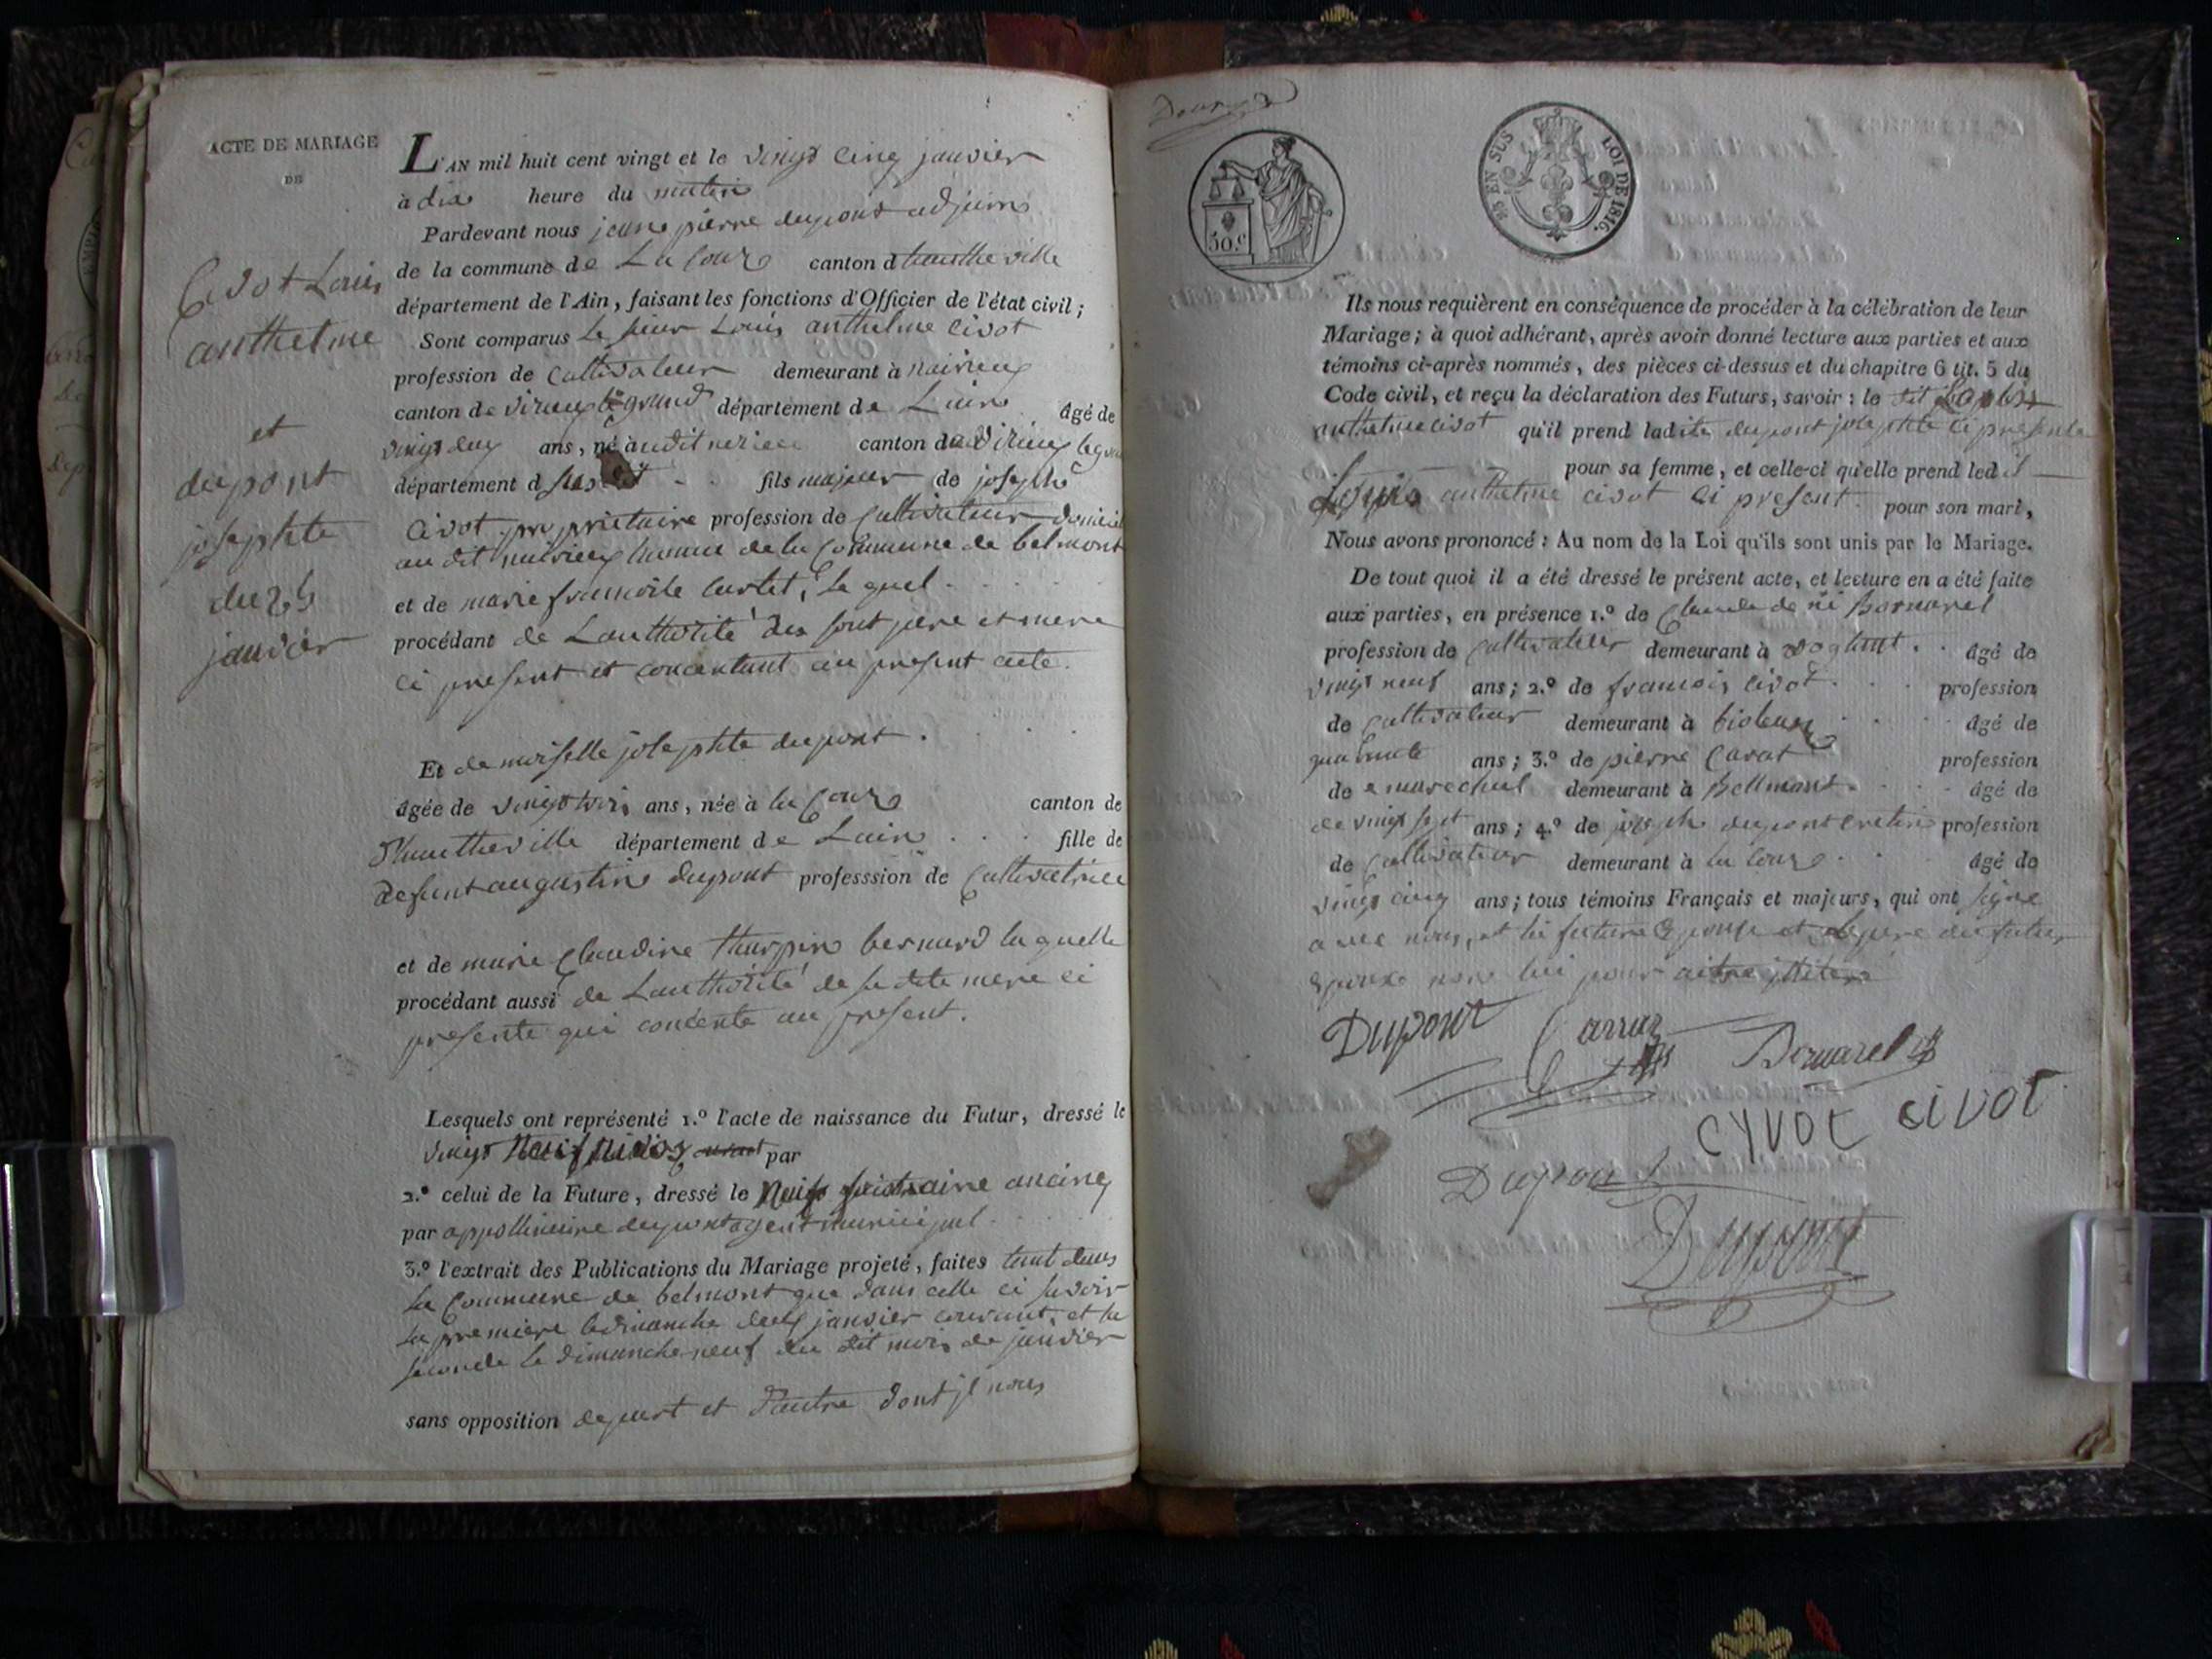 ACTE DE MARIAGE
DE
Civot Louis
anthelme
et
dupont
josephte
du 25
janvier
L'AN mil huit cent vingt et le vingt cinq janvier
à dix heure du matin
Pardevant nous jean pierre dupont adjoint
de la commune de La Cour canton d'hautheville
département de l'Ain, faisant les fonctions d'Officier de l'état civil;
Sont comparus le sieur Louis anthelme civot
profession de Cultivateur demeurant à
canton de virieu le grand département de Lain âgé de
ans, né audit canton de virieu le
département d fils majeur de joseph
Civot propriétaire profession de Cultivateur
au dit de la Commune de belmont
et de marie Le quel
procédant de Lauthorité des sont pere et mere
ci present et concentant au present acte.
Et demoiselle josephte dupont
âgée de vingt trois ans, née à la Cour canton de
d'hautheville département de Lain fille de
defunt augustin dupont professsion de Cultivatrice
et de marie Claudine bernard la quelle
procédant aussi de Lauthorité de sa dite mere ci
presente qui concente au present.
Lesquels ont représenté 1.º l'acte de naissance du Futur, dressé le
vingt par
2.º celui de la Future, dressé le an cinq
par dupont agent municipal
3.º l'extrait des Publications du Mariage projeté, faites tant dans
La Commune de belmont que dans celle ci savoir
La premiere le dimanche deux janvier courant, et la
seconde le dimanche neuf du dit mois de janvier
sans opposition de part et d'autre dont il nous
50.c
25 EN SUS LOI DE 1816.
Ils nous requièrent en conséquence de procéder à la célébration de leur
Mariage; à quoi adhérant, après avoir donné lecture aux parties et aux
témoins ci-après nommés, des pièces ci-dessus et du chapitre 6 tit. 5 du
Code civil, et reçu la déclaration des Futurs, savoir: le dit
anthelme civot qu'il prend ladite dupont josephte ci presente
pour sa femme, et celle-ci qu'elle prend ledit
Louis anthelme civot ci present pour son mari,
Nous avons prononcé: Au nom de la Loi qu'ils sont unis par le Mariage.
De tout quoi il a été dressé le présent acte, et lecture en a été faite
aux parties, en présence 1.º de Bornarel
profession de Cultivateur demeurant à âgé de
vingt neuf ans; 2.º de francois civot profession
de Cultivateur demeurant à âgé de
quarante ans; 3.º de pierre profession
de marechal demeurant à Bellmont âgé de
de vingt sept ans; 4.º de joseph dupont profession
de Cultivateur demeurant à La Cour âgé de
vingt cinq ans; tous témoins Français et majeurs, qui ont signé
avec nous, et la future Epouse et le pere du futur
Epoux non lui pour
Dupont Carraz Bornarel
CYVOt CiVOt
Dupont
Dupont